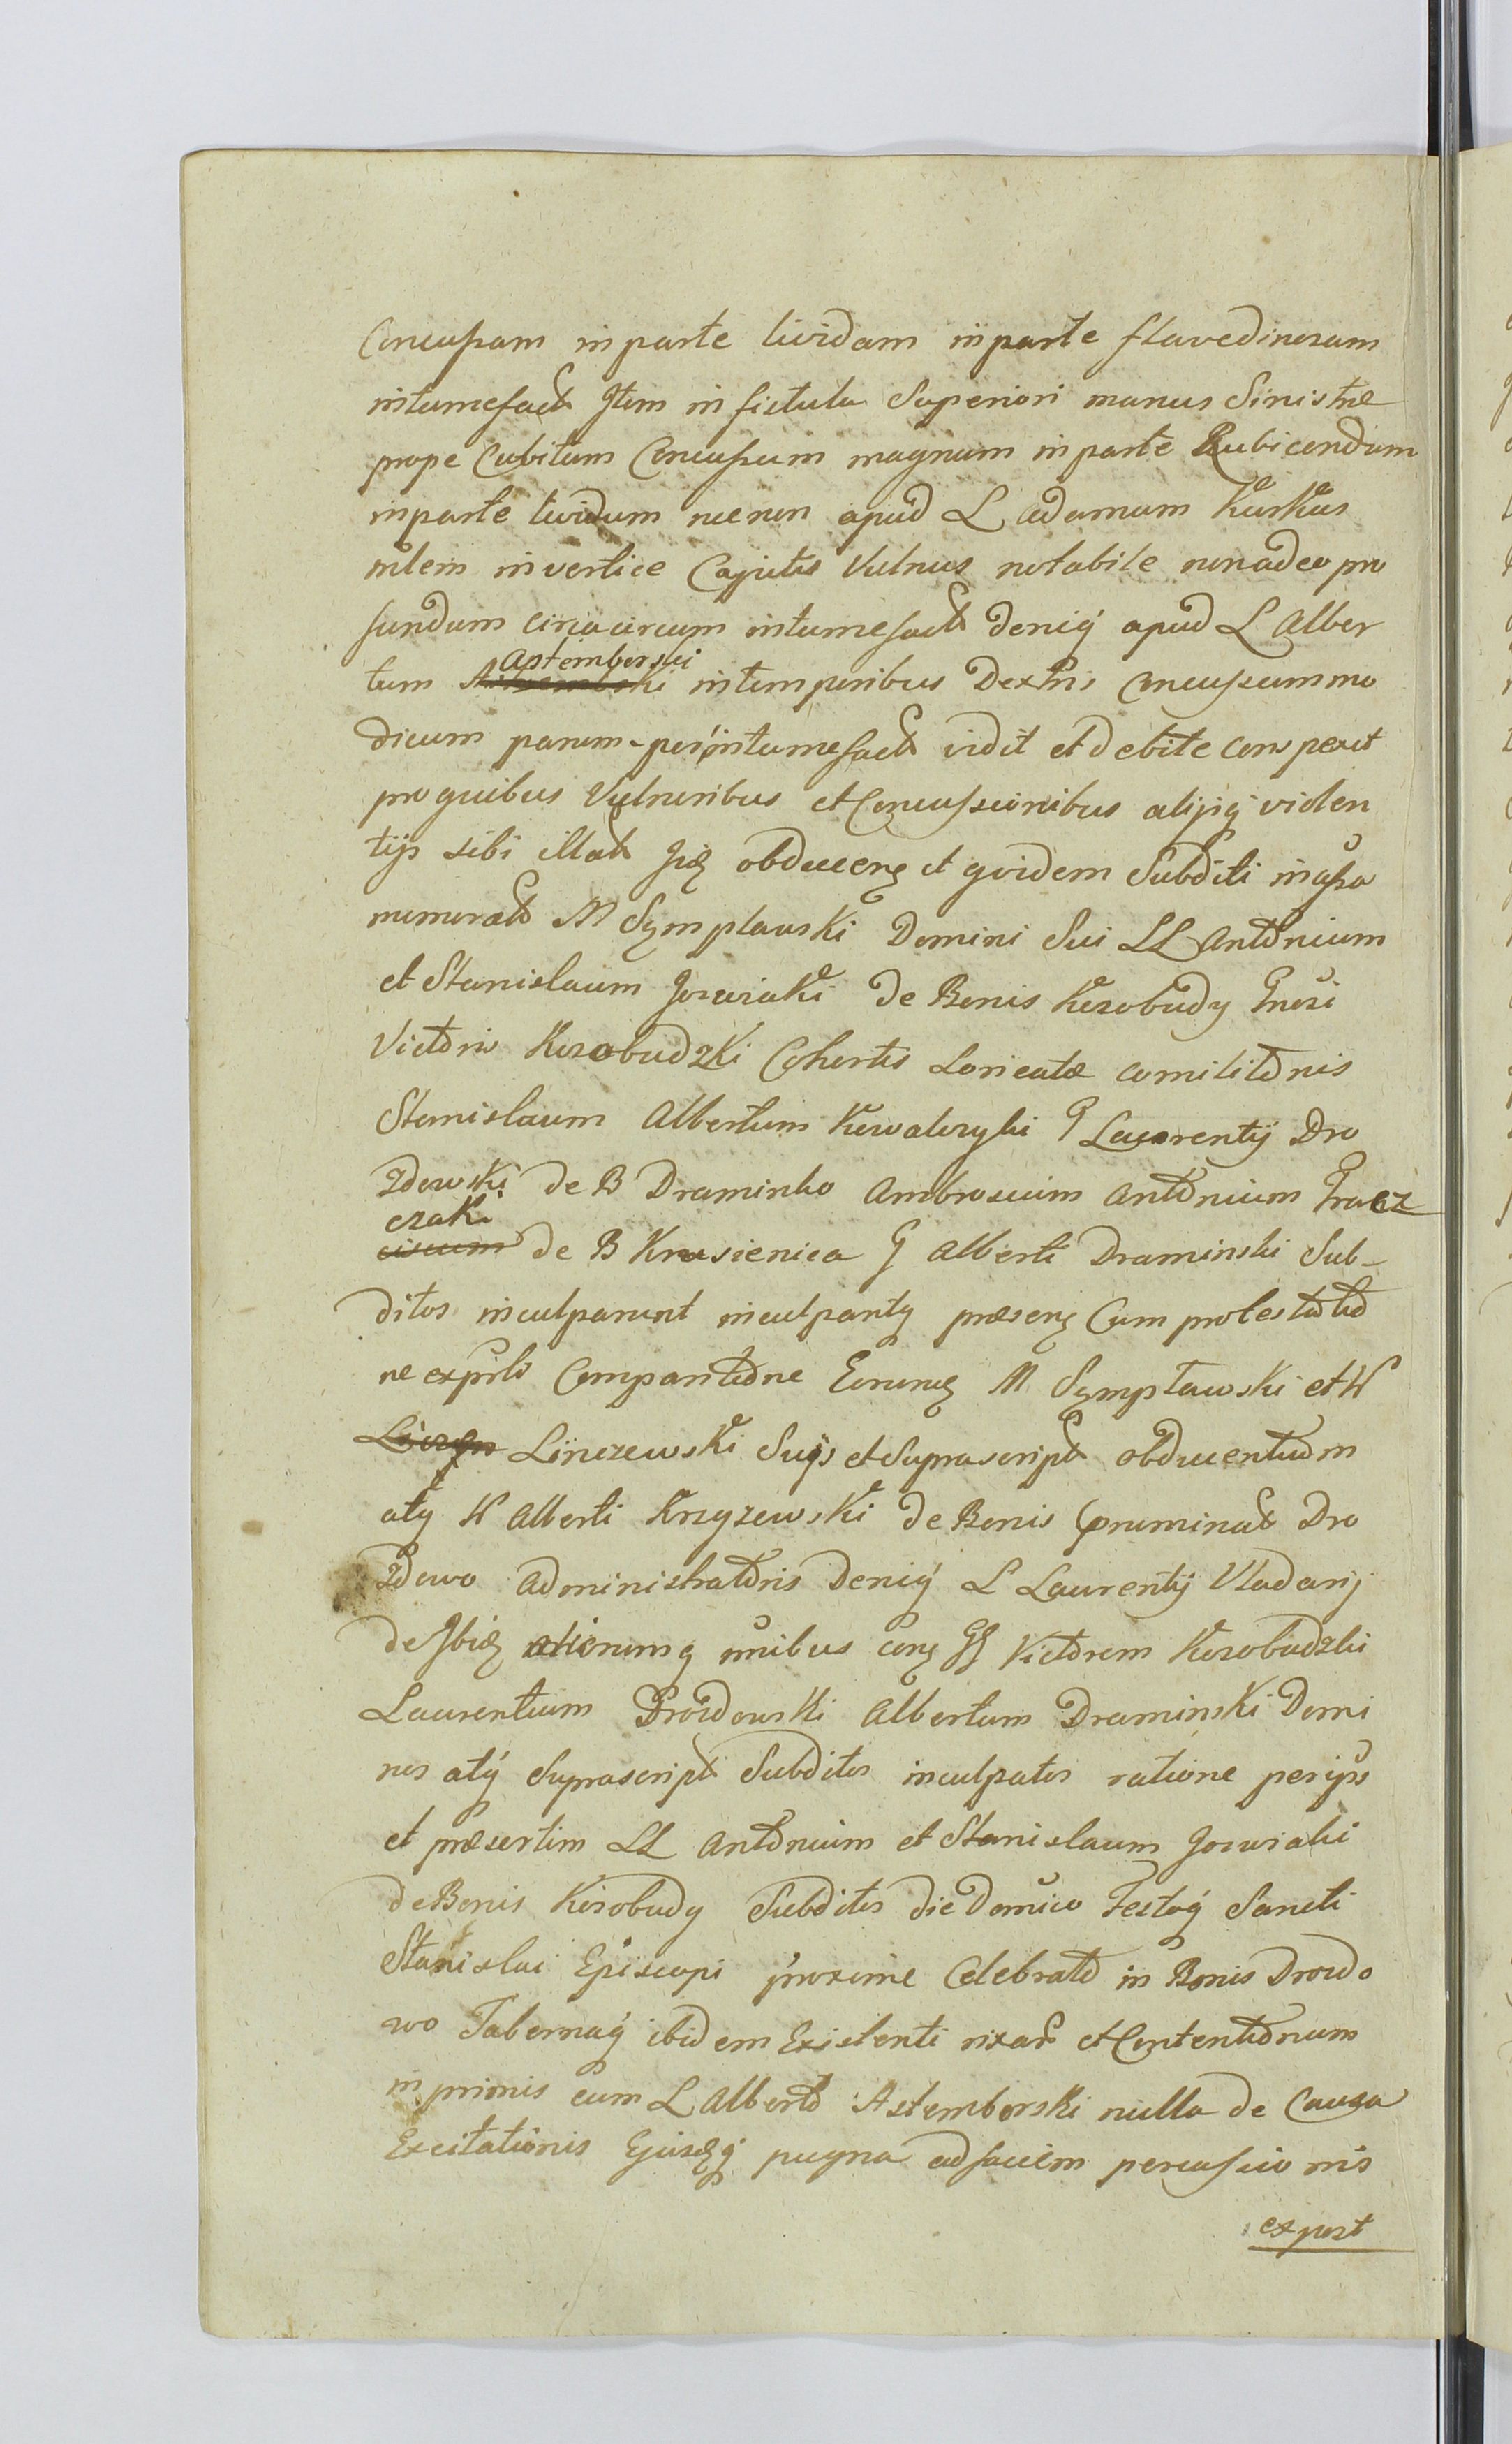 Concussam in parte lividam in parte flavedinosam
intumefact Item in fistula Superiori manus Sinistræ
prope Cubitum Concussum magnum in parte Rubicondum
in parte lividum necnon apud L Adamum Kurkus
in vertice Capitis Vulnus notabile non adeo pro
fundum circa circum intumefact deniq apud L Alber
tum Astemborski in temporibus Dextris Concussum mo
dicum parum-per intumefact vidit et debite conspexit
pro quibus Vulneribus et Concussionibus alijsq violen
tijs sibi illat obducen et quidem Subditi
numerat M Symplawski Domini Sui LL Antonium
et Stanislaum Jozwiaki de Bonis Kosobudy Gnosi
Victoris Kosobudzki Cohortis Loricatæ comilitonis
Stanislaum Albertum Kowalczyki G Laurentij Dro
zdowski de B Draminko Ambrosium Antonium Fracz
czaki
de B Krasienica G Alberti Draminski Sub-
ditos inculparunt inculpantq præsen Cum protestatio
ne Comparitione M Symplawski et N
Linczewski Suijs et Suprascript obducentium
atq N Alberti Krzyzewski de Bonis prominat Dro
zdowo Administratoris deniq L Laurentij Vladarij
de Ibid aliorumq omibus con GG Victorem Kosobudzki
Laurentium Drozdowski Albertum Draminski Domi
nos atq Suprascript Subditos inculpatos ratione per ipsos
et præsertim LL Antonium et Stanislaum Jozwiaki
de Bonis Kosobudy Subditos die Domico Festoq Sancti
Stanislai Episcopi proxime Celebrato in Bonis Drozdo
wo Tabernaq ibidem Existenti rixar et Contentionum
in primis cum L Alberto Astemborski nulla de Causa
Excitationis Ejusdq pugna ad faciem percussionis
expost